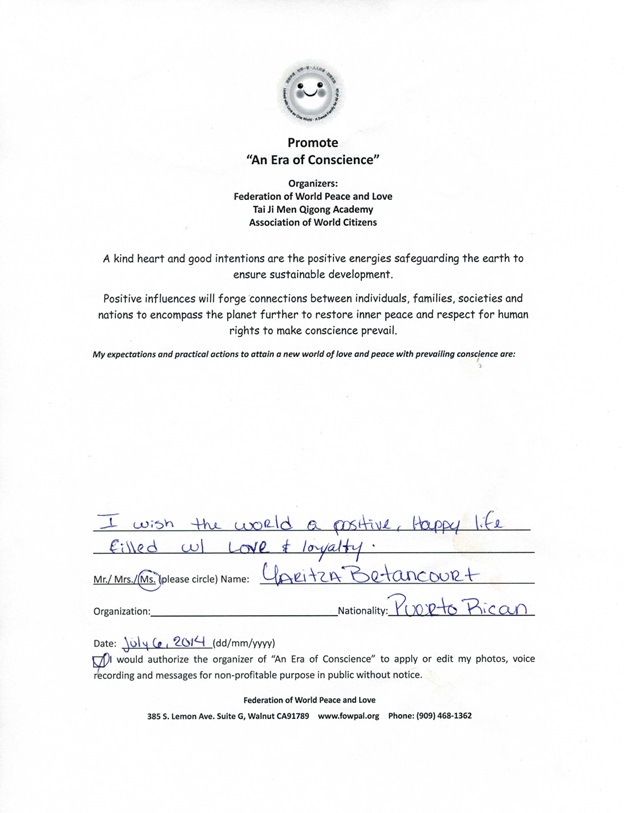 Promote
“An Era of Conscience”
Organizers:
Federation of World Peace and Love
Tai Ji Men Qigong Academy
Association of World Citizens
A kind heart and good intentions are the positive energies safeguarding the earth to
ensure sustainable development.
Positive influences will forge connections between individuals, families, societies and
nations to encompass the planet further to restore inner peace and respect for human
rights to make conscience prevail.
My expectations and practical actions to attain a new world of love and peace with prevailing conscience are:
I wish the world a positive, Happy life
filled w/ Love & loyalty.
Mr./ Mrs./Ms. (please circle) Name: Yaritza Betancourt
Organization: Nationality: Puerto Rican
Date: July 6, 2014 (dd/mm/yyyy)
I would authorize the organizer of “An Era of Conscience” to apply or edit my photos, voice
recording and messages for non-profitable purpose in public without notice.
Federation of World Peace and Love
385 S. Lemon Ave. Suite G, Walnut CA91789 www.fowpal.org Phone: (909) 468-1362